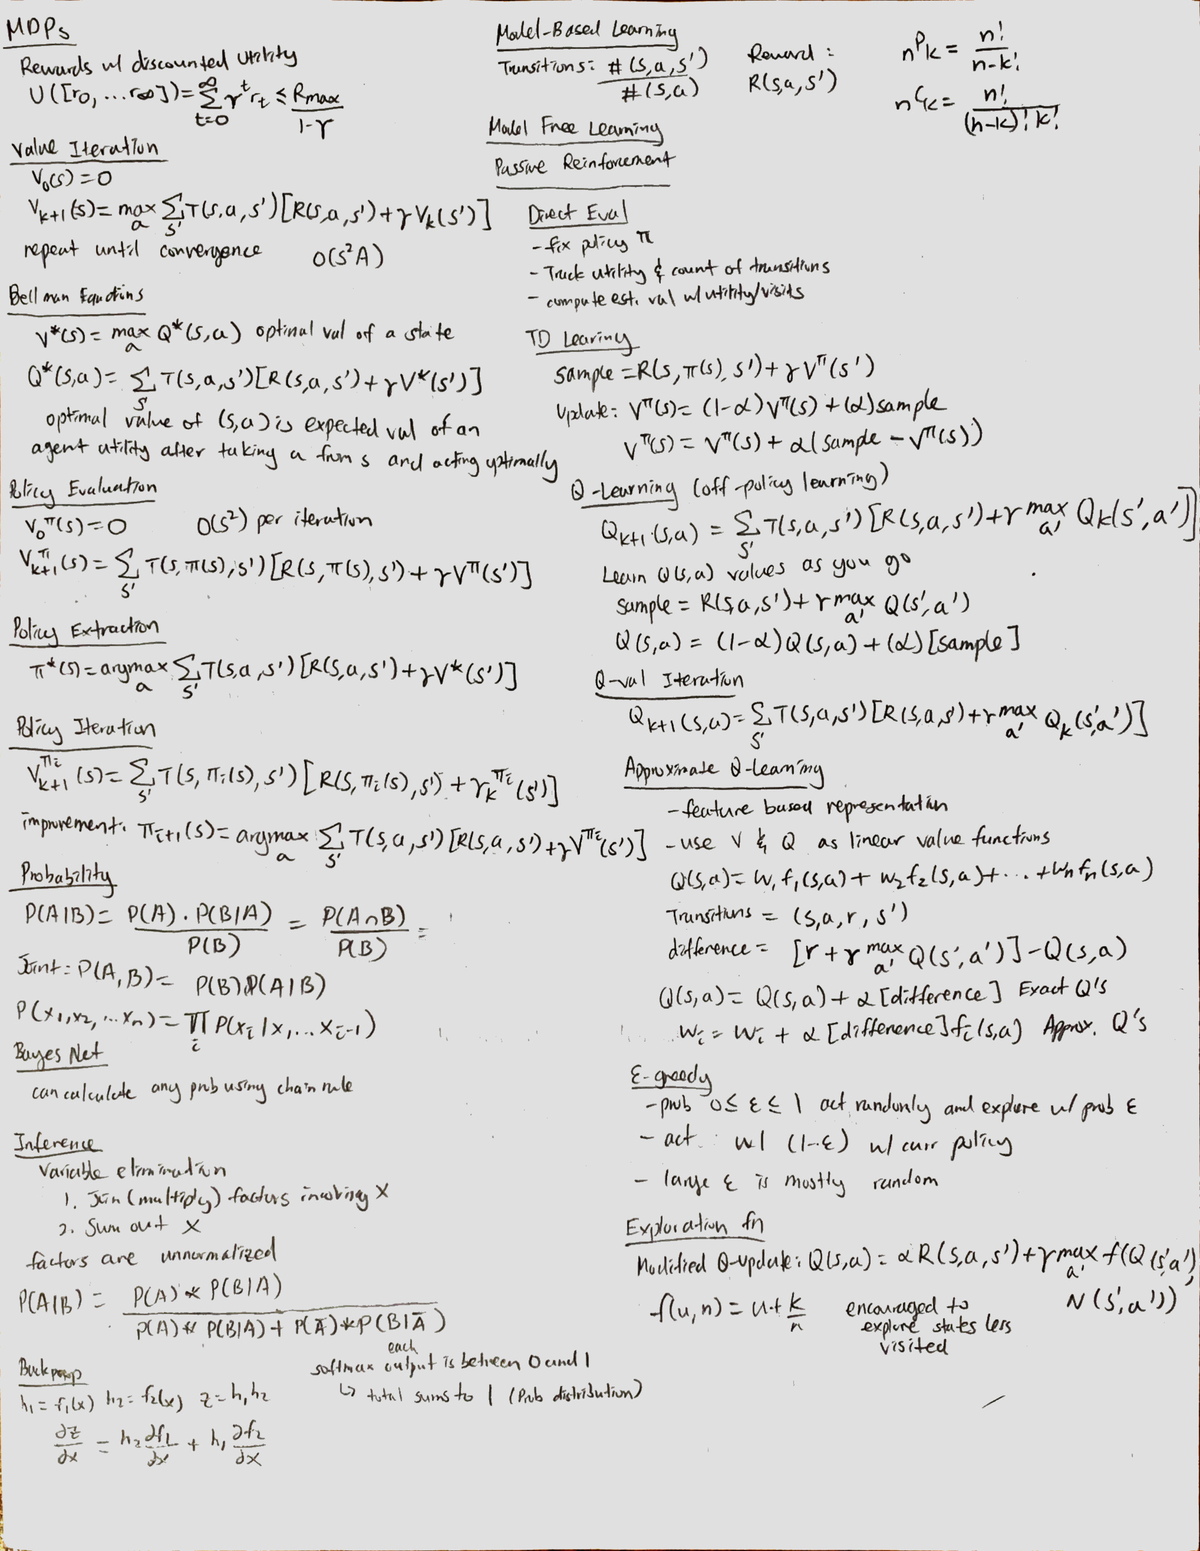 MDPs
Rewards w/ discounted utility
U([r₀, ... r∞]) = ∑_{t=0}^{∞} γ^t r_t ≤ Rmax / 1-γ
Value Iteration
V₀(s) = 0
V_{k+1}(s) = max_a ∑_{s'} T(s,a,s')[R(s,a,s') + γ V_k(s')]
repeat until convergence O(S²A)
Bellman Equations
V*(s) = max_a Q*(s,a) optimal val of a state
Q*(s,a) = ∑_{s'} T(s,a,s')[R(s,a,s') + γV*(s')]
optimal value of (s,a) is expected val of an
agent utility after taking a from s and acting optimally
Policy Evaluation
V₀^π(s) = 0 O(S²) per iteration
V_{k+1}^π(s) = ∑_{s'} T(s,π(s),s')[R(s,π(s),s') + γV^π(s')]
Policy Extraction
π*(s) = argmax_a ∑_{s'} T(s,a,s')[R(s,a,s') + γV*(s')]
Policy Iteration
V_{k+1}^{πi}(s) = ∑_{s'} T(s,πi(s),s')[R(s,πi(s),s') + γ_k^{πi}(s')]
improvement: π_{i+1}(s) = argmax_a ∑_{s'} T(s,a,s')[R(s,a,s') + γV^{πi}(s')]
Probability
P(A|B) = P(A)·P(B|A) / P(B) = P(A∩B) / P(B) =
Joint: P(A,B) = P(B)P(A|B)
P(x₁,x₂,...xₙ) = ∏_i P(x_i|x₁...x_{i-1})
Bayes Net
can calculate any prob using chain rule
Inference
Variable elimination
1. Join (multiply) factors involving X
2. Sum out X
factors are unnormalized
P(A|B) = P(A) * P(B|A) / P(A) * P(B|A) + P(Ā) * P(B|Ā)
Backprop
h₁ = f₁(x) h₂ = f₂(x) z = h₁h₂
∂z/∂x = h₂ ∂f₁/∂x + h₁ ∂f₂/∂x
softmax each output is between 0 and 1
↳ total sums to 1 (Prob distribution)
Model-Based Learning
Transitions: #(s,a,s') / #(s,a)
Reward:
R(s,a,s')
nPk = n! / n-k!
nCk = n! / (n-k)! k!
Model Free Learning
Passive Reinforcement
Direct Eval
- fix policy π
- Track utility & count of transitions
- compute est. val w/ utility/visits
TD Learing
sample = R(s,π(s),s') + γV^π(s')
Update: V^π(s) = (1-α)V^π(s) + (α)sample
V^π(s) = V^π(s) + α(sample - V^π(s))
Q-Learning (off-policy learning)
Q_{k+1}(s,a) = ∑_{s'} T(s,a,s')[R(s,a,s') + γ max_{a'} Q_k(s',a')]
Learn Q(s,a) values as you go
sample = R(s,a,s') + γ max_{a'} Q(s',a')
Q(s,a) = (1-α)Q(s,a) + (α)[sample]
Q-val Iteration
Q_{k+1}(s,a) = ∑_{s'} T(s,a,s')[R(s,a,s') + γ max_{a'} Q_k(s',a')]
Approximate Q-learning
- feature based representation
- use V & Q as linear value functions
Q(s,a) = w₁f₁(s,a) + w₂f₂(s,a) + ... + wₙfₙ(s,a)
Transitions = (s,a,r,s')
difference = [r + γ max_{a'} Q(s',a')] - Q(s,a)
Q(s,a) = Q(s,a) + α[difference] Exact Q's
w_i = w_i + α[difference]f_i(s,a) Approx. Q's
ε-greedy
- prob 0 ≤ ε ≤ 1 act randomly and explore w/ prob ε
- act w/ (1-ε) w/ curr policy
- large ε is mostly random
Exploration fn
Modified Q-update: Q(s,a) = αR(s,a,s') + γ max_{a'} f(Q(s',a'),
N(s',a'))
f(u,n) = u + k/n
encouraged to
explore states less
visited